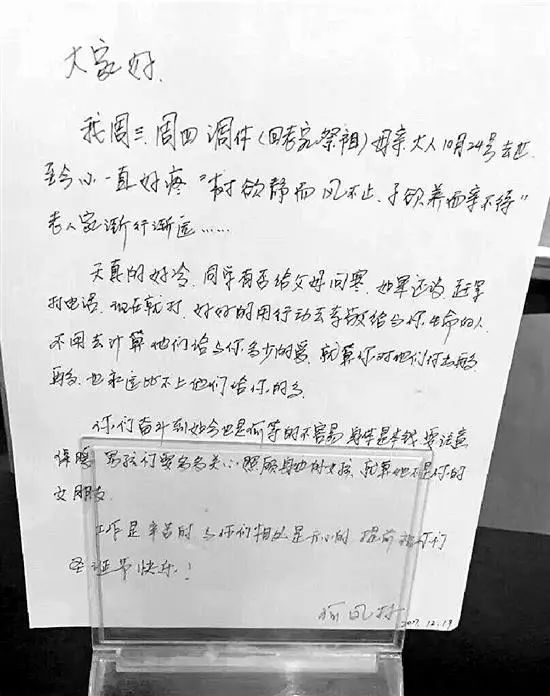 大家好.
我周三.周四调休(回老家祭祖)母亲大人10月24号去世.
至今心一直好疼"树欲静而风不止.子欲养而亲不待"
老人家渐行渐远……
天真的好冷.同学有否给父母问寒.如果还没.赶紧
打电话.现在就打.好好的用行动去孝敬给与你生命的人.
不用去计算他们给与你多少的爱.就算你对他们付出再多
再多.也永远比不上他们给你的多.
你们奋斗到如今也是何等的不容易.身体是本钱.要注意
保暖.男孩们要多多关心照顾身边的女孩.就算她不是你的
女朋友.
工作是辛苦的.与你们相处是开心的.提前祝你们
圣诞节快乐!
2017.12.19